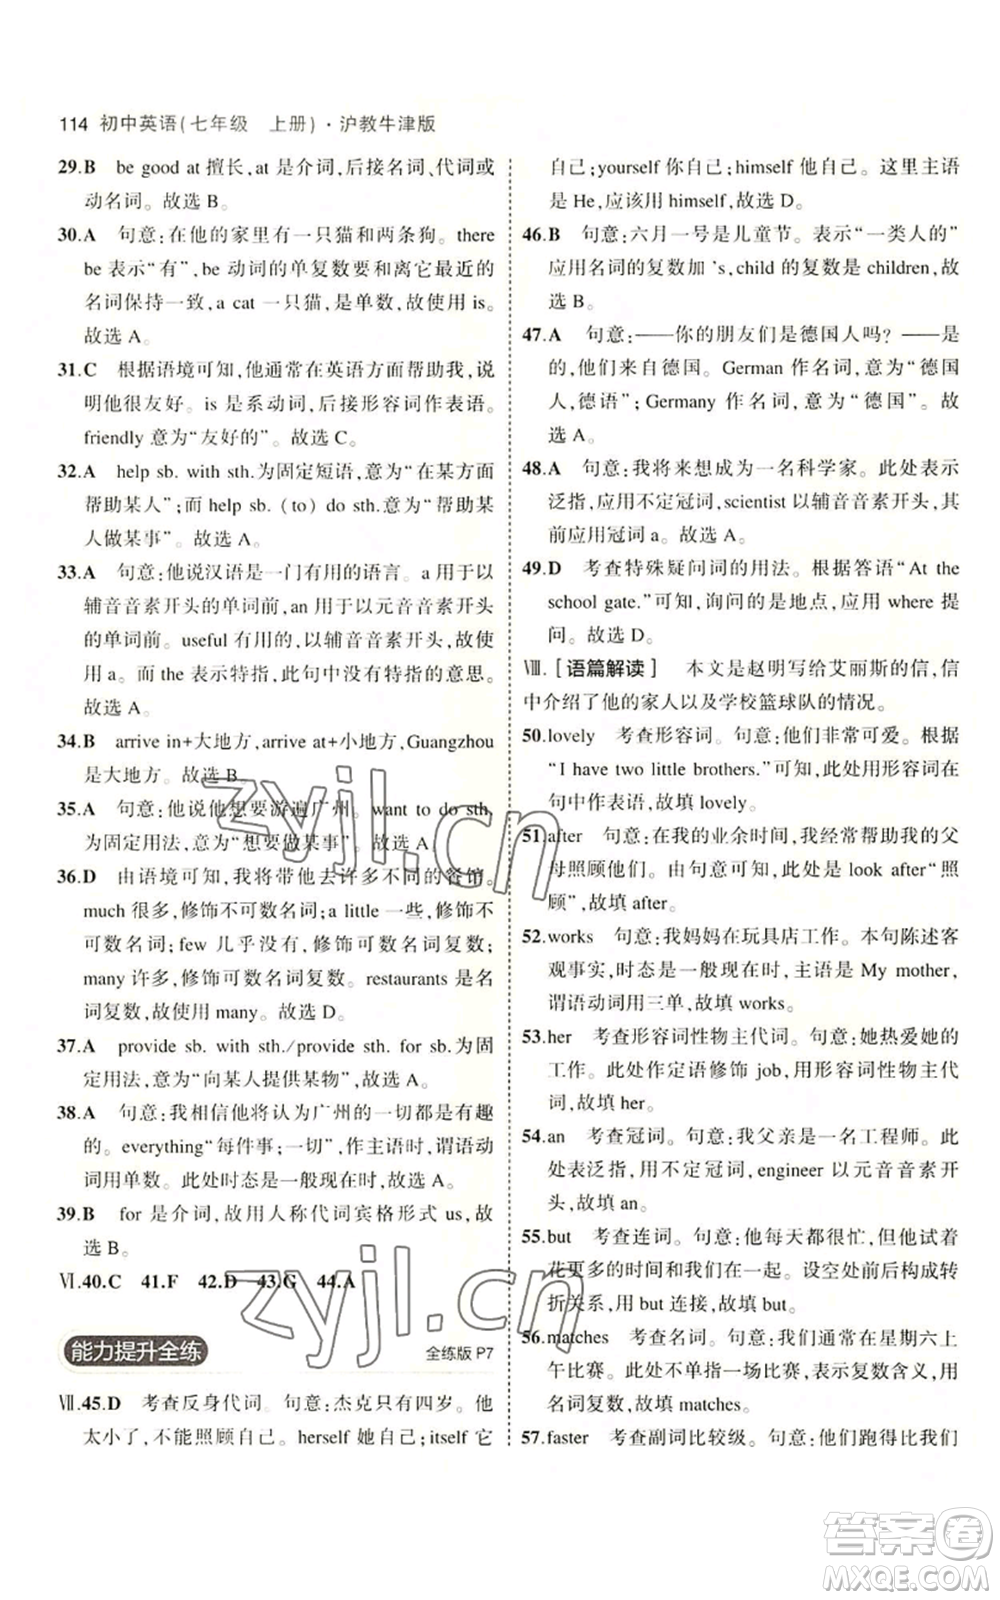 114 初中英语(七年级 上册)·沪教牛津版
29.B be good at 擅长,at 是介词,后接名词、代词或
动名词。故选 B。
30.A 句意:在他的家里有一只猫和两条狗。there
be 表示“有”,be 动词的单复数要和离它最近的
名词保持一致,a cat 一只猫,是单数,应使用 is。
故选 A。
31.C 根据语境可知,他通常在英语方面帮助我,说
明他很友好。is 是系动词,后接形容词作表语。
friendly 意为“友好的”。故选 C。
32.A help sb. with sth.为固定短语,意为“在某方面
帮助某人”;而 help sb. (to) do sth.意为“帮助某
人做某事”。故选 A。
33.A 句意:他说汉语是一门有用的语言。a 用于以
辅音音素开头的单词前,an 用于以元音音素开头
的单词前。useful 有用的,以辅音音素开头,故使
用 a;而 the 表示特指,此句中没有特指的含义。
故选 A。
34.B arrive in+大地方,arrive at+小地方,Guangzhou
是大地方。故选 B。
35.A 句意:他说他想要游遍广州。want to do sth.
为固定用法,意为“想要做某事”。故选 A。
36.D 由语境可知,我将带他去许多不同的餐馆。
much 很多,修饰不可数名词;a little 一些,修饰不
可数名词;few 几乎没有,修饰可数名词复数;
many 许多,修饰可数名词复数。restaurants 是名
词复数,故使用 many。故选 D。
37.A provide sb. with sth./provide sth. for sb.为固
定用法,意为“向某人提供某物”。故选 A。
38.A 句意:我相信他将认为广州的一切都是有趣
的。everything“每件事;一切”,作主语时,谓语动
词用单数。此处时态是一般现在时。故选 A。
39.B for 是介词,故用人称代词宾格形式 us,故
选 B。
Ⅵ.40.C 41.F 42.D 43.G 44.A
能力提升全练 全练版 P7
Ⅶ.45.D 考查反身代词。句意:杰克只有四岁。他
太小了,不能照顾自己。herself 她自己;itself 它
自己;yourself 你自己;himself 他自己。这里主语
是 He,应该用 himself,故选 D。
46.B 句意:六月一号是儿童节。表示“一类人的”
应用名词的复数加 's,child 的复数是 children,故
选 B。
47.A 句意:——你的朋友们是德国人吗? ——是
的,他们来自德国。German 作名词,意为“德国
人,德语”;Germany 作名词,意为“德国”。故
选 A。
48.A 句意:我将来想成为一名科学家。此处表示
泛指,应用不定冠词,scientist 以辅音音素开头,其
前应用冠词 a。故选 A。
49.D 考查特殊疑问词的用法。根据答语“At the
school gate.”可知,询问的是地点,应用 where 提
问。故选 D。
Ⅷ.[语篇解读] 本文是赵明写给艾丽斯的信,信
中介绍了他的家人以及学校篮球队的情况。
50.lovely 考查形容词。句意:他们非常可爱。根据
“I have two little brothers.”可知,此处用形容词在
句中作表语,故填 lovely。
51.after 句意:在我的业余时间,我经常帮助我的父
母照顾他们。由句意可知,此处是 look after“照
顾”,故填 after。
52.works 句意:我妈妈在玩具店工作。本句陈述客
观事实,时态是一般现在时,主语是 My mother,
谓语动词用三单,故填 works。
53.her 考查形容词性物主代词。句意:她热爱她的
工作。此处作定语修饰 job,用形容词性物主代
词,故填 her。
54.an 考查冠词。句意:我父亲是一名工程师。此
处表泛指,用不定冠词,engineer 以元音音素开
头,故填 an。
55.but 考查连词。句意:他每天都很忙,但他试着
花更多的时间和我们在一起。设空处前后构成转
折关系,用 but 连接,故填 but。
56.matches 考查名词。句意:他们通常在星期六上
午比赛。此处表示不止一场比赛,应用可数名
词复数,故填 matches。
57.faster 考查副词比较级。句意:他们跑得比我们
zyjl.cn
zyjl.cn
答案卷
MXQE.COM